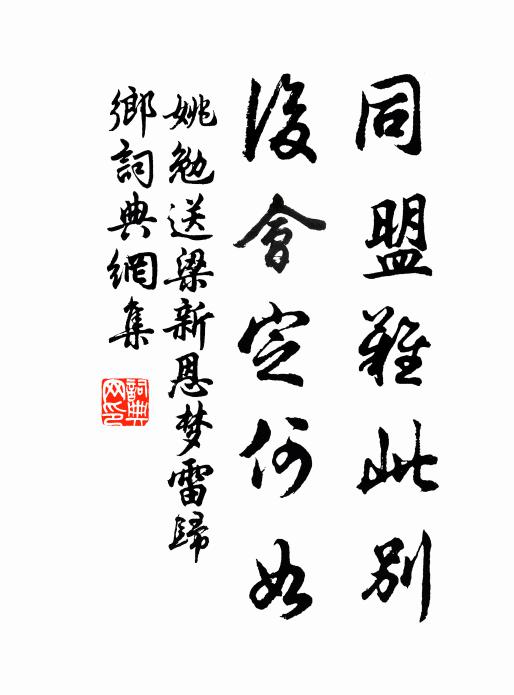 同盟難此別
後會定何如
姚勉送梁新恩夢雷歸
鄉詞典網集
詞典網印